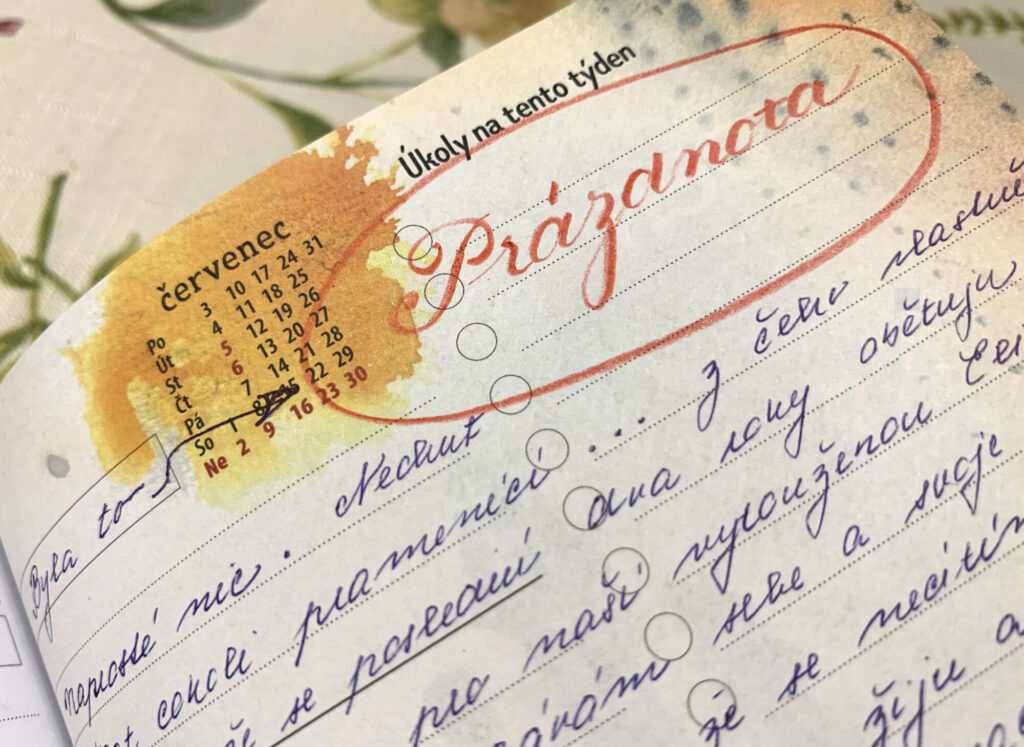 Úkoly na tento týden
Prázdnota
červenec
Po 3 10 17 24 31
Út 4 11 18 25
St 5 12 19 26
Čt 6 13 20 27
Pá 7 14 21 28
So 1 8 15 22 29
Ne 2 9 16 23 30
Byla to
Nechuť
naprosté nic. z čeho vlastně
cokoli pramenící ...
se poslední dva roky obětuju
pro naši vytouženou
sebe a svoje
že se necítím
žiju a